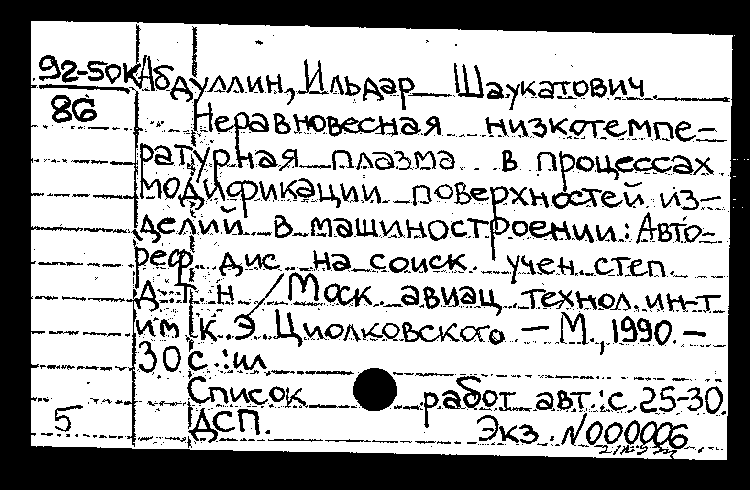 92-50к Абдуллин, Ильдар Шаукатович.
86 Неравновесная низкотемпе-
ратурная плазма в процессах
модификации поверхностей из-
делий в машиностроении: Авто-
реф дис на соиск. учен. степ.
д. т. н / Моск авиац технол. ин-т
им К. Э. Циолковского – М., 1990. –
30 с.: ил
Список работ авт.: с. 25-30.
5 ДСП. Экз. N000006